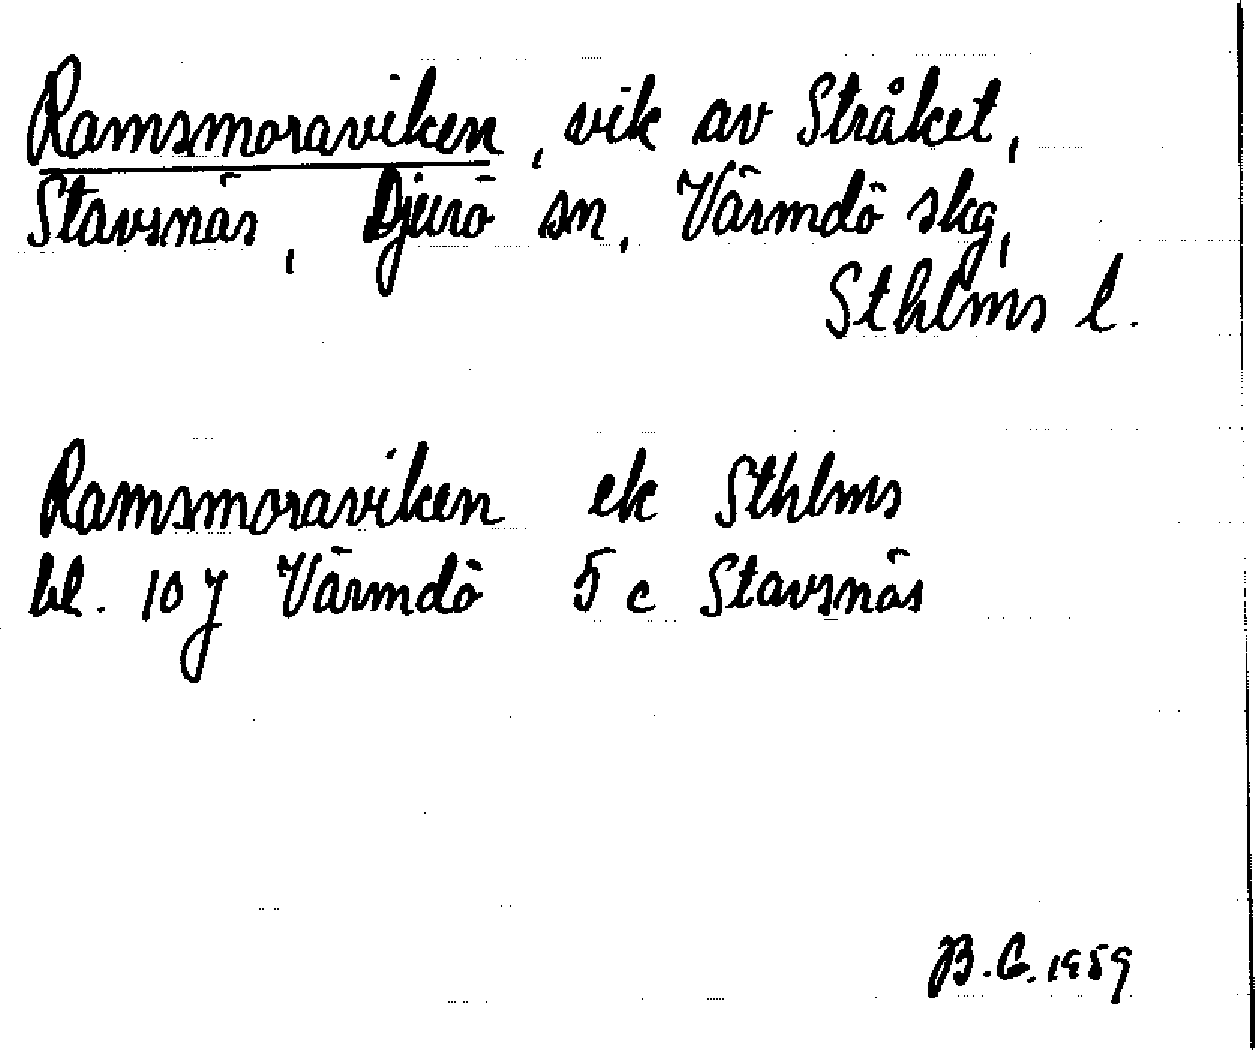 Ramsmoraviken, vik av Stråket,
Stavsnäs, Djurö sn, Värmdö skg,
Sthlms l.
Ramsmoraviken ek Sthlms
bl. 10 J Värmdö 5 c Stavsnäs
B.G. 1959